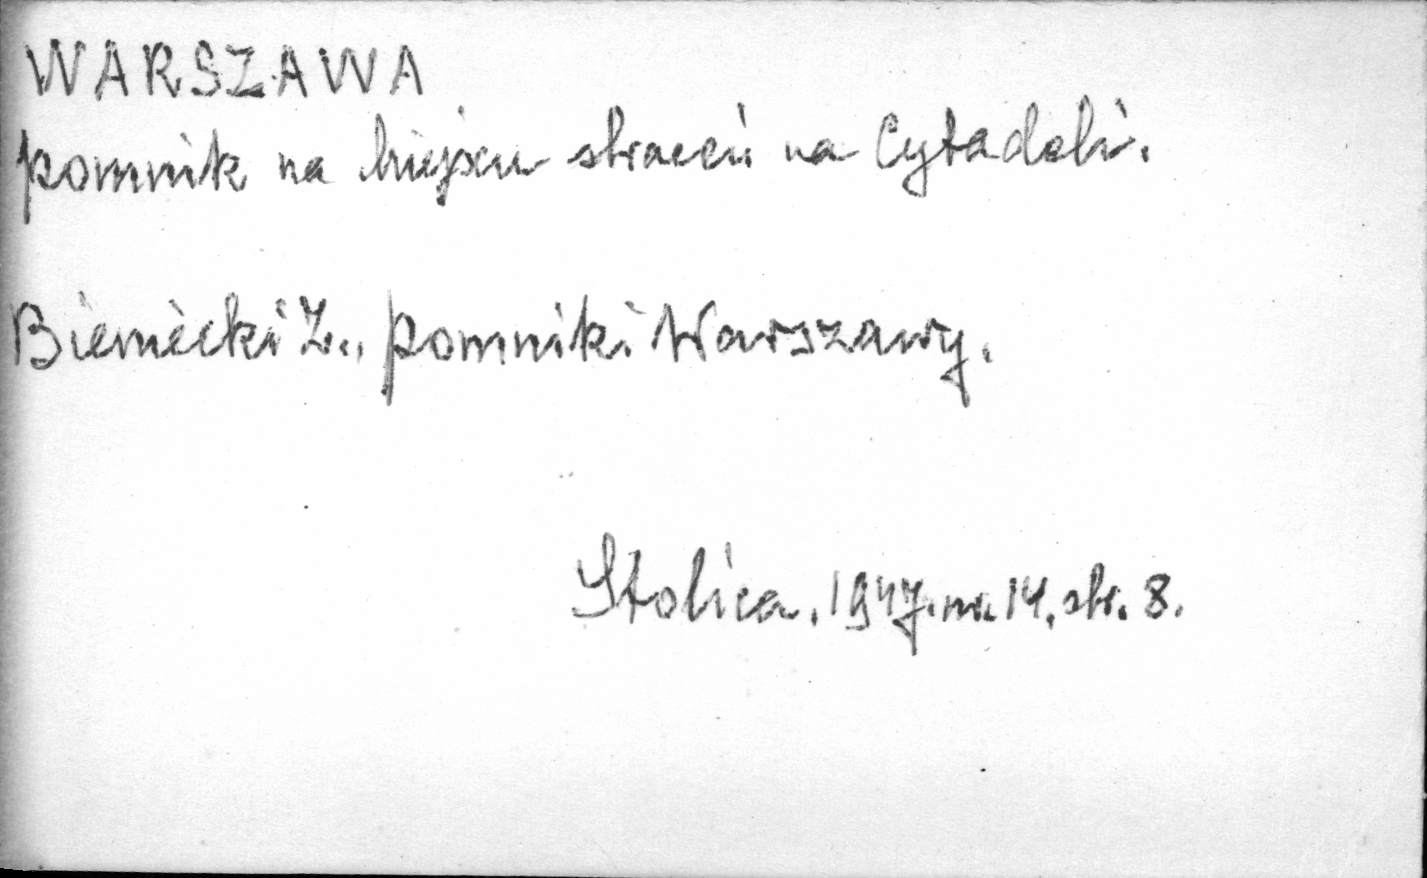 WARSZAWA
pomnik na miejscu straceń na Cytadeli.
Bieniecki Z., pomniki Warszawy.
Stolica. 1947. nr. 14. str. 8.